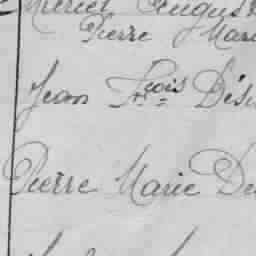 August
Pierre Mari
Jean Fçois Dési
Pierre Marie De